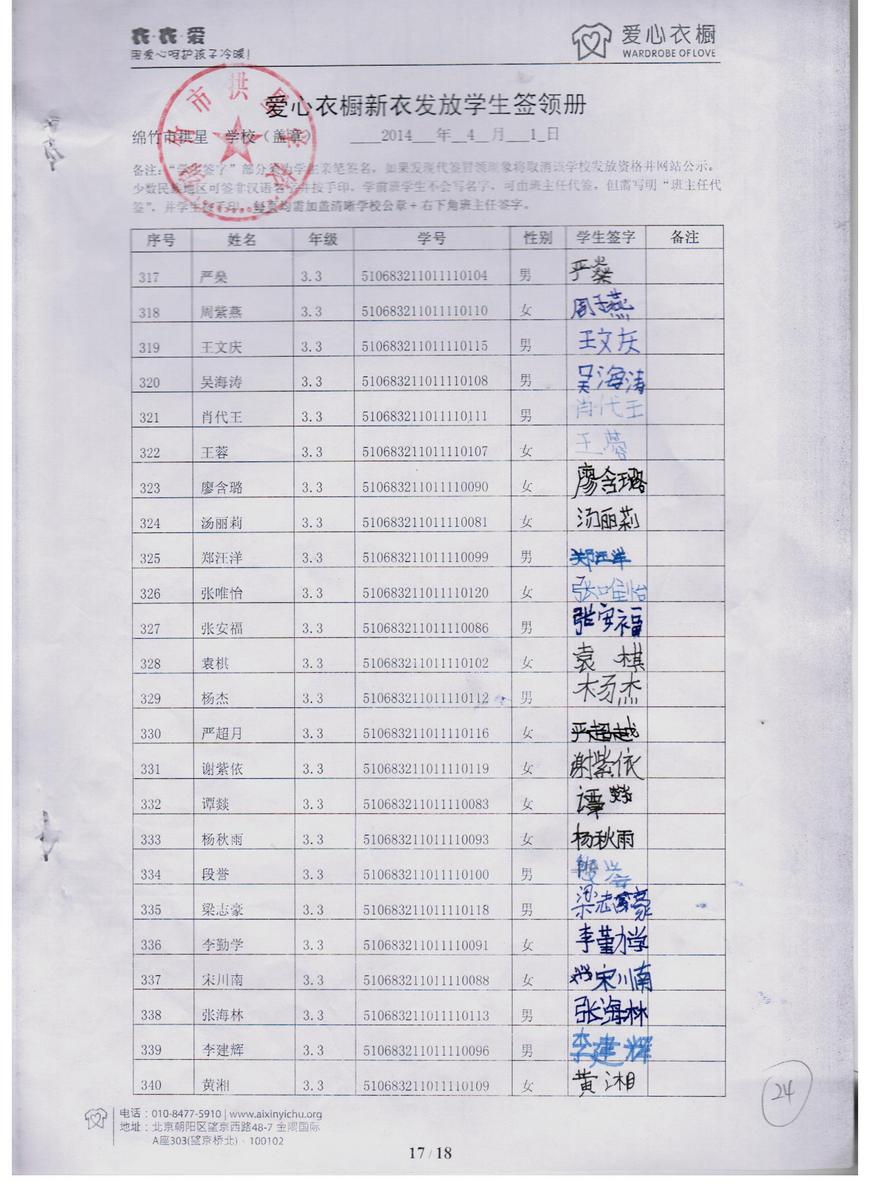 衣·衣·爱
用爱心呵护孩子冷暖!
爱心衣橱
WARDROBE OF LOVE
爱心衣橱新衣发放学生签领册
绵竹市拱星 学校（盖章） 2014 年 4 月 1 日
备注：“学生签字”部分须为学生亲笔签名，如果发现代签冒领现象将取消该学校发放资格并网站公示。
少数民族地区可签非汉语名字并按手印，学前班学生不会写名字，可由班主任代签，但需写明“班主任代
签”，并学生按手印，每页均需加盖清晰学校公章+右下角班主任签字。
序号 姓名 年级 学号 性别 学生签字 备注
317 严燊 3.3 510683211011110104 男 严燊
318 周紫燕 3.3 510683211011110110 女 周子燕
319 王文庆 3.3 510683211011110115 男 王文庆
320 吴海涛 3.3 510683211011110108 男 吴海涛
321 肖代王 3.3 510683211011110111 男 肖代王
322 王蓉 3.3 510683211011110107 女 王蓉
323 廖含璐 3.3 510683211011110090 女 廖含璐
324 汤丽莉 3.3 510683211011110081 女 汤丽莉
325 郑汪洋 3.3 510683211011110099 男 郑汪洋
326 张唯怡 3.3 510683211011110120 女 张唯怡
327 张安福 3.3 510683211011110086 男 张安福
328 袁棋 3.3 510683211011110102 女 袁棋
329 杨杰 3.3 510683211011110112 男 杨杰
330 严超月 3.3 510683211011110116 女 严超越
331 谢紫依 3.3 510683211011110119 女 谢紫依
332 谭燚 3.3 510683211011110083 女 谭燚
333 杨秋雨 3.3 510683211011110093 女 杨秋雨
334 段誉 3.3 510683211011110100 男 段誉
335 梁志豪 3.3 510683211011110118 男 梁志豪
336 李勤学 3.3 510683211011110091 女 李勤学
337 宋川南 3.3 510683211011110088 女 宋川南
338 张海林 3.3 510683211011110113 男 张海林
339 李建辉 3.3 510683211011110096 男 李建辉
340 黄湘 3.3 510683211011110109 女 黄湘
24
电话：010-8477-5910 | www.aixinyichu.org
地址：北京朝阳区望京西路48-7 金隅国际
A座303(望京桥北)·100102
17 / 18